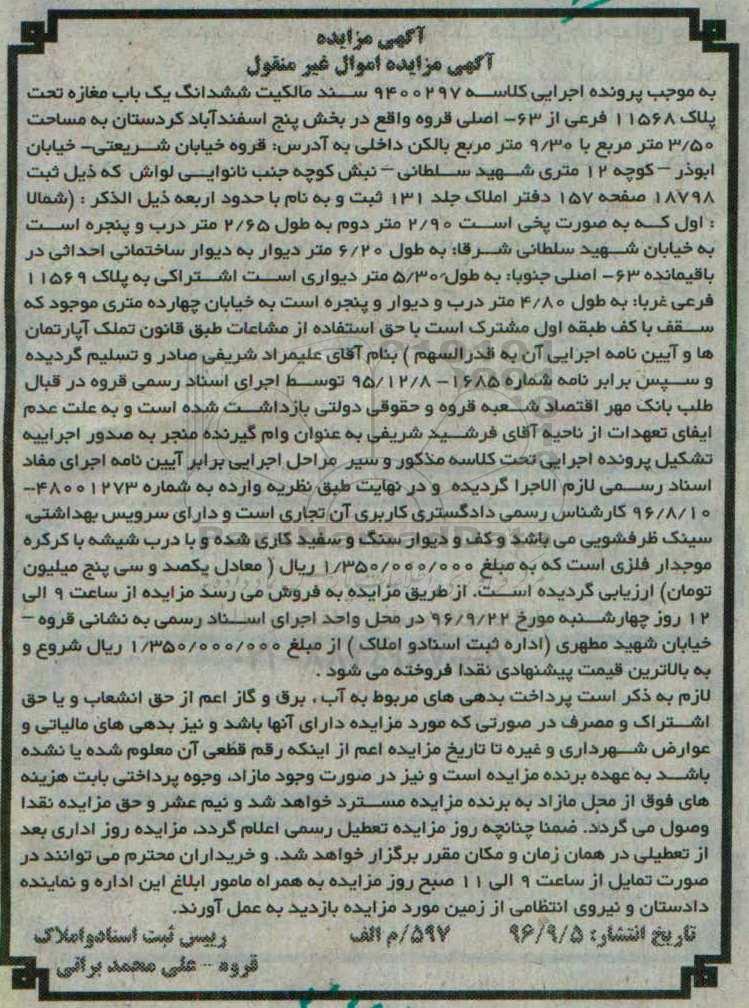 آگهی مزایده
آگهی مزایده اموال غیر منقول
به موجب پرونده اجرایی کلاسه ۹۴۰۰۲۹۷ سند مالکیت ششدانگ یک باب مغازه تحت
پلاک ۱۱۵۶۸ فرعی از ۶۳- اصلی قروه واقع در بخش پنج اسفندآباد کردستان به مساحت
۳/۵۰ متر مربع با ۹/۳۰ متر مربع بالکن داخلی به آدرس: قروه خیابان شریعتی- خیابان
ابوذر – کوچه ۱۲ متری شهید سلطانی – نبش کوچه جنب نانوایی لواش که ذیل ثبت
۱۸۷۹۸ صفحه ۱۵۷ دفتر املاک جلد ۱۳۱ ثبت و به نام با حدود اربعه ذیل الذکر : (شمالا
: اول که به صورت پخی است ۲/۹۰ متر دوم به طول ۲/۶۵ متر درب و پنجره است
به خیابان شهید سلطانی شرقا: به طول ۶/۲۰ متر دیوار به دیوار ساختمانی احداثی در
باقیمانده ۶۳- اصلی جنوبا: به طول ۵/۳۰ متر دیواری است اشتراکی به پلاک ۱۱۵۶۹
فرعی غربا: به طول ۴/۸۰ متر درب و دیوار و پنجره است به خیابان چهارده متری موجود که
سقف با کف طبقه اول مشترک است با حق استفاده از مشاعات طبق قانون تملک آپارتمان
ها و آیین نامه اجرایی آن به قدرالسهم ) بنام آقای علیمراد شریفی صادر و تسلیم گردیده
و سپس برابر نامه شماره ۱۶۸۵- ۹۵/۱۲/۸ توسط اجرای اسناد رسمی قروه در قبال
طلب بانک مهر اقتصاد شعبه قروه و حقوقی دولتی بازداشت شده است و به علت عدم
ایفای تعهدات از ناحیه آقای فرشید شریفی به عنوان وام گیرنده منجر به صدور اجراییه
تشکیل پرونده اجرایی تحت کلاسه مذکور و سیر مراحل اجرایی برابر آیین نامه اجرای مفاد
اسناد رسمی لازم الاجرا گردیده و در نهایت طبق نظریه وارده به شماره ۴۸۰۰۱۲۷۳-
۹۶/۸/۱۰ کارشناس رسمی دادگستری کاربری آن تجاری است و دارای سرویس بهداشتی،
سینک ظرفشویی می باشد و کف و دیوار سنگ و سفید کاری شده و با درب شیشه با کرکره
موجدار فلزی است که به مبلغ ۱/۳۵۰/۰۰۰/۰۰۰ ریال ( معادل یکصد و سی پنج میلیون
تومان) ارزیابی گردیده است. از طریق مزایده به فروش می رسد مزایده از ساعت ۹ الی
۱۲ روز چهارشنبه مورخ ۹۶/۹/۲۲ در محل واحد اجرای اسناد رسمی به نشانی قروه –
خیابان شهید مطهری (اداره ثبت اسنادو املاک ) از مبلغ ۱/۳۵۰/۰۰۰/۰۰۰ ریال شروع و
به بالاترین قیمت پیشنهادی نقدا فروخته می شود .
لازم به ذکر است پرداخت بدهی های مربوط به آب ، برق و گاز اعم از حق انشعاب و یا حق
اشتراک و مصرف در صورتی که مورد مزایده دارای آنها باشد و نیز بدهی های مالیاتی و
عوارض شهرداری و غیره تا تاریخ مزایده اعم از اینکه رقم قطعی آن معلوم شده یا نشده
باشد به عهده برنده مزایده است و نیز در صورت وجود مازاد، وجوه پرداختی بابت هزینه
های فوق از محل مازاد به برنده مزایده مسترد خواهد شد و نیم عشر و حق مزایده نقدا
وصول می گردد. ضمنا چنانچه روز مزایده تعطیل رسمی اعلام گردد، مزایده روز اداری بعد
از تعطیلی در همان زمان و مکان مقرر برگزار خواهد شد. و خریداران محترم می توانند در
صورت تمایل از ساعت ۹ الی ۱۱ صبح روز مزایده به همراه مامور ابلاغ این اداره و نماینده
دادستان و نیروی انتظامی از زمین مورد مزایده بازدید به عمل آورند.
تاریخ انتشار: ۹۶/۹/۵ ۵۹۷/م الف رییس ثبت اسنادواملاک
قروه - علی محمد براتی